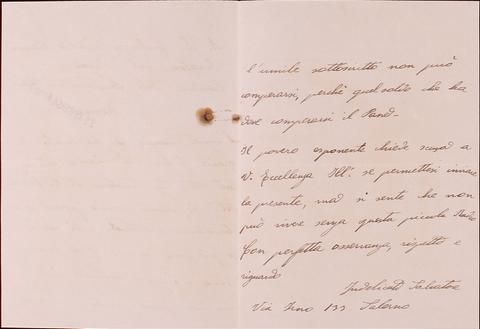 l'umile sottoscritto non può
comperarsi, perchè quel soldo che ha
deve comperarsi il Pane-
Il povero esponente chiede scusa a
V. Eccellenza Ill. se permettesi inviare
la presente, ma si sente che non
può vivere senza questa piccola Radio
Con perfetta osservanza, rispetto e
riguardo
Indelicati Salvatore
Via Irno 133 Salerno